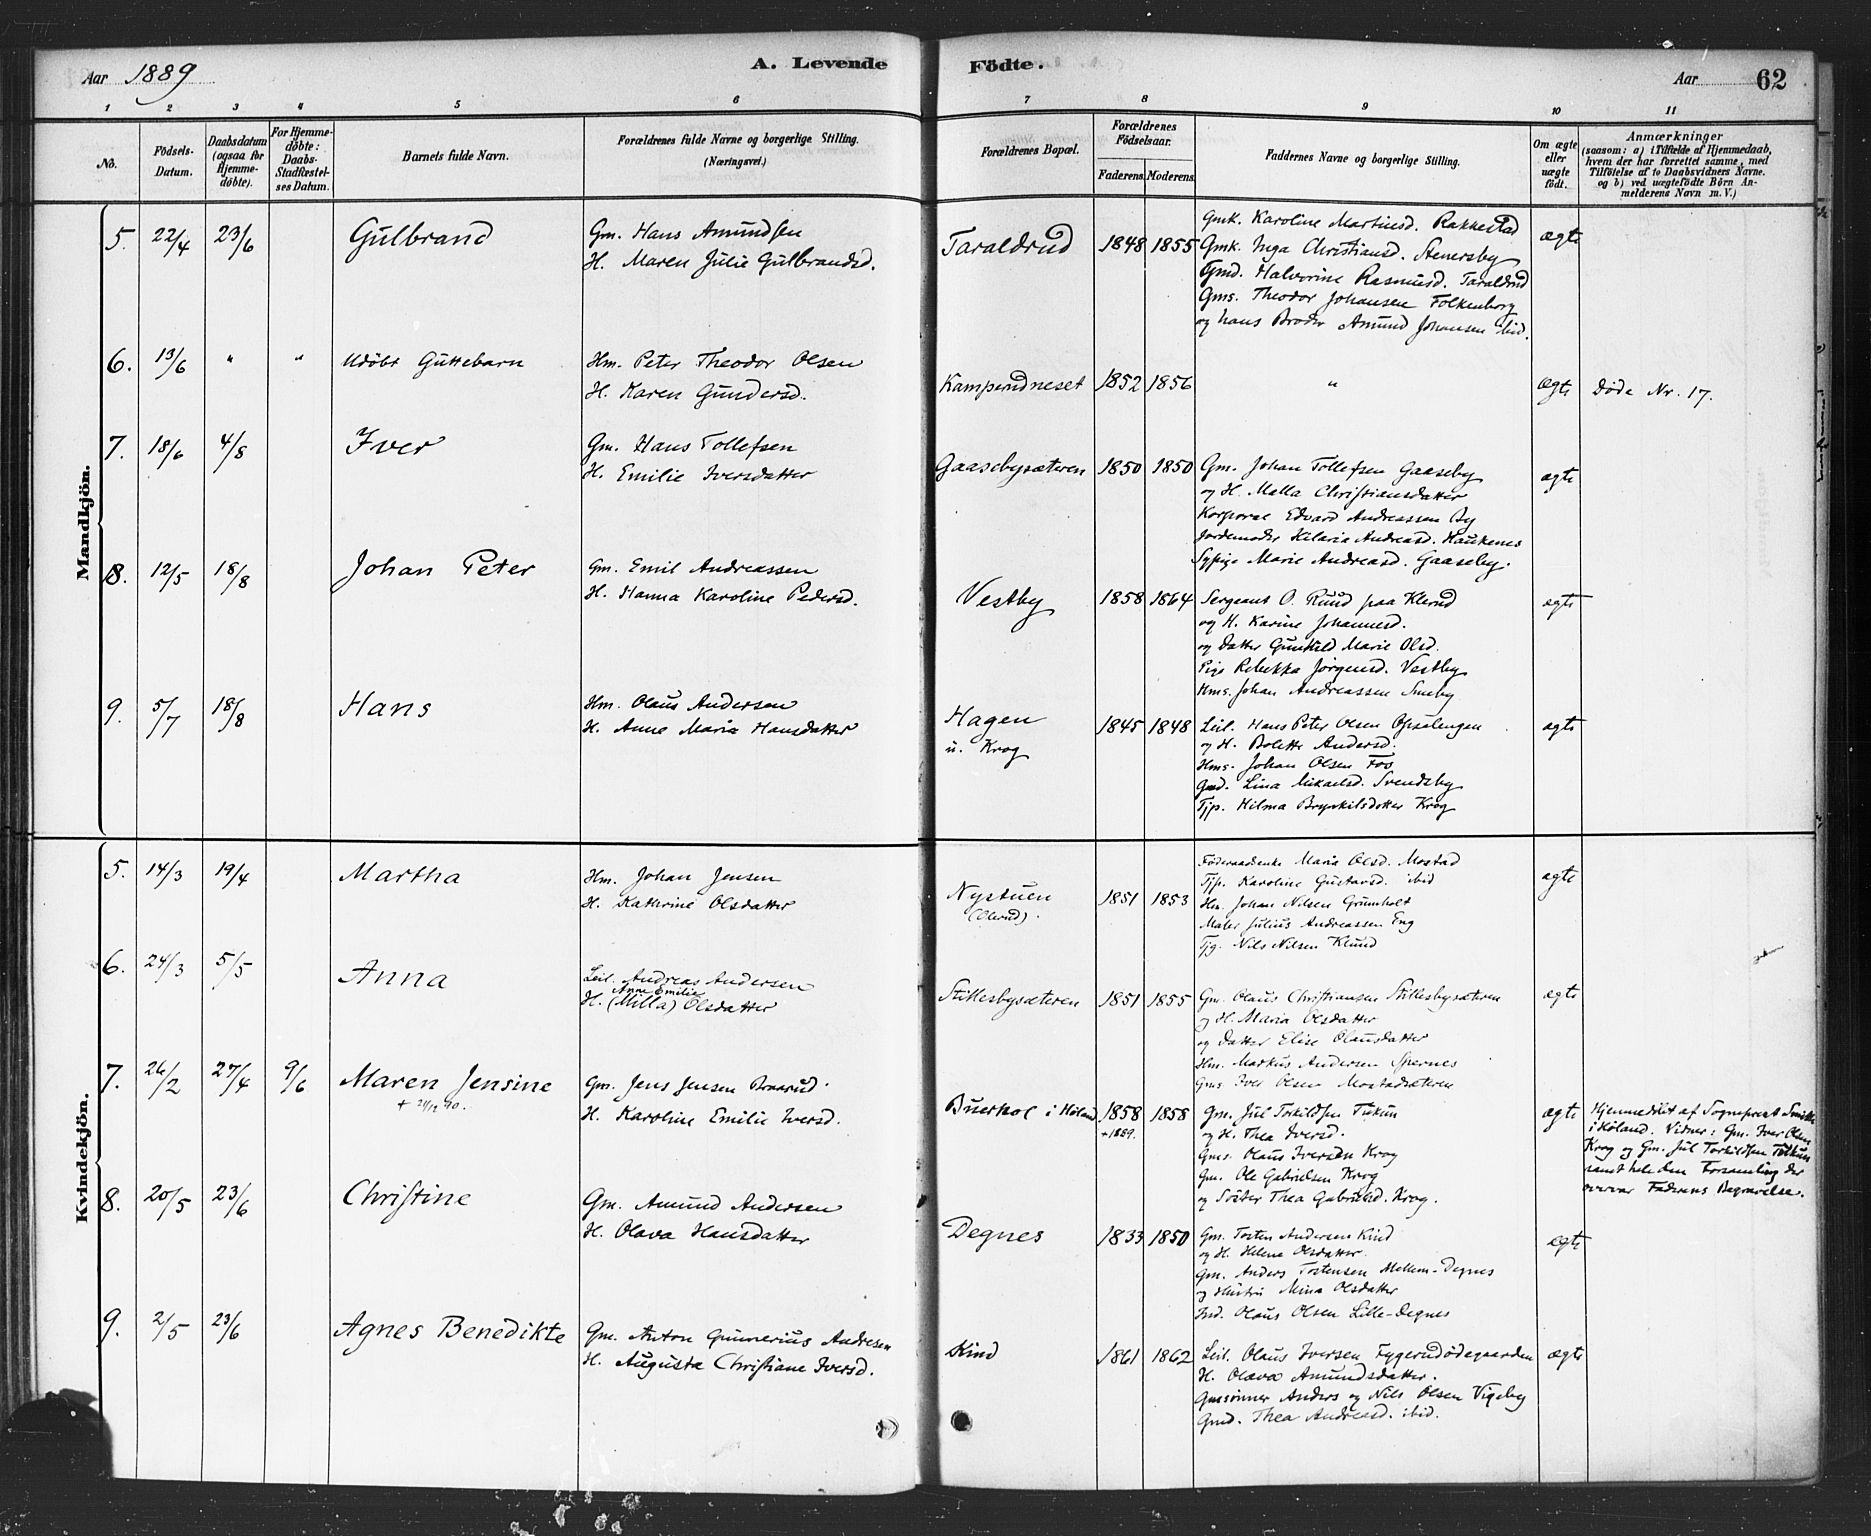 Aar 1889
A. Levende
Fødte.
Aar
62
1 2 3 4 5 6 7 8 9 10 11
No.
Födsels-
Datum.
Daabsdatum
(ogsaa for
Hjemme-
döbte).
For Hjemme-
döbte:
Daabs-
Stadfæstel-
ses Datum.
Barnets fulde Navn.
Forældrenes fulde Navne og borgerlige Stilling.
(Næringsvei.)
Forældrenes Bopæl.
Forældrenes
Födselsaar.
Faderens. Moderens.
Faddernes Navne og borgerlige Stilling.
Om ægte
eller
uægte
födt.
Anmærkninger
(saasom: a) i Tilfælde af Hjemmedaab,
hvem der har forrettet samme, med
Tilföielse af to Daabsvidners Navne.
og b) ved uægtefödte Börn An-
melderens Navn m. V.)
Mandkjön.
5. 22/4 23/6 Gulbrand
Gm. Hans Amundsen
H. Maren Julie Gulbrandsd.
Taraldrud 1848 1855
Gmk. Karoline Martinsd. Rakkestad
Gmk. Inga Christiansd. Stenersby
Gmd. Halvorine Rasmusd. Taraldrud
Gms. Theodor Johansen Folkenborg
og hans Broder Amund Johansen ibid.
ægte
6. 13/6 " " Udøbt Guttebarn
Hm. Peter Theodor Olsen
H. Karen Gundersd.
Kamperudneset 1852 1856 " ægte Døde Nr. 17.
7. 18/6 4/8 Iver
Gm. Hans Tollefsen
H. Emilie Iversdatter
Gaasebysæteren 1850 1850
Gm. Johan Tollefsen Gaaseby
og H. Malla Christiansdatter
Korporal Edvard Andreassen By
Jordemoder Hilaria Andreasd. Haukenes
Sypige Marie Andreasd. Gaaseby.
ægte
8. 12/5 18/8 Johan Peter
Gm. Emil Andreassen
H. Hanna Karoline Pedersd.
Vestby 1858 1864
Sergeant O. Ruud paa Klerud
og H. Karine Johannesd.
og Datter Gunhild Marie Olsd.
Pige Rebekka Jørgensd. Vestby
Hms. Johan Andreassen Smeby
ægte
9. 5/7 18/8 Hans
Hm. Olaus Andersen
H. Anne Maria Hansdatter
Hagen
u. Krog
1845 1848
Leil. Hans Peter Olsen Opsalengen
og H. Bolette Andersd.
Hms. Johan Olsen Fos
Gmd. Lina Mikaelsd. Svendsby
Tjp. Hilma Brynhilsdotter Krog
ægte
Kvindekjön.
5. 14/3 19/4 Martha
Hm. Johan Jensen
H. Kathrine Olsdatter
Nystuen
(Olerud).
1851 1853
Føderaadsenke Maria Olsd. Mostad
Tjp. Karoline Gustavsd. ibid
Hm. Johan Nilsen Grumholt
Maler Julius Andreassen Eng
Tjg. Nils Nilsen Klund
ægte
6. 24/3 5/5 Anna
Leil. Andreas Andersen
Anne Emilie
H. (Milla) Olsdatter
Stillesbysæteren 1851 1855
Gm. Olaus Christiansen Stillesbysæteren
og H. Maria Olsdatter
og Datter Elise Olausdatter
Hm. Markus Andersen Spernes
Gms Iver Olsen Mostadsæteren
ægte
7. 26/2 27/4 9/6 Maren Jensine
+ 24/12 90.
Gm. Jens Jensen Braarud.
H. Karoline Emilie Iversd.
Buerhol i Høland 1858 1858
+1889.
Gm. Jul Torkildsen Tukun
og H. Thea Iversd.
Gms. Olaus Iversen Krog
Gm. Ole Gabrielsen Krog
og Søster Thea Gabrielsd. Krog.
ægte
Hjemmedøbt af Sogneprest Smith
i Høland. Vidner: Gm. Iver Olsen
Krog og Gm. Jul Torkildsen Tukun
samt hele den Forsamling der
overvar Faderens Begravelse.
8. 20/5 23/6 Christine
Gm. Amund Andersen
H. Olava Hansdatter
Degnes 1833 1850
Gm. Tosten Andersen Kind
og H. Helene Olsdatter.
Gm. Anders Tostensen Mellem-Degnes
og Hustru Mina Olsdatter
Ind. Olaus Olsen Lille-Degnes
ægte
9. 2/5 23/6 Agnes Benedikte
Gm. Anton Gunnerius Andresen
H. Augusta Christiane Iversd.
Kind 1861 1862
Leil. Olaus Iversen Fygerudødegaarden
H. Olava Amundsdatter.
Gmsønner Anders og Nils Olsen Vigeby
Gmd. Thea Andreasd. ibid.
ægte